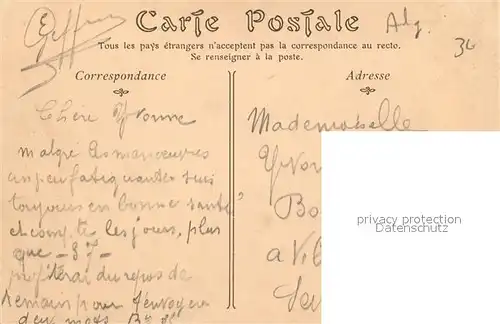 Carte Postale
Alg.
36
Tous les pays étrangers n'acceptent pas la correspondance au recto.
Se renseigner à la poste.
Correspondance
Adresse
Chère Yvonne
malgré les manœuvres
un peu fatiguantes suis
toujours en bonne santé
et compte les jours, plus
que - 37 -
profiterai du repos de
demain pour t'envoyer
deux mots
Mademoiselle
Yvon
Bo
a Vil
privacy protection
watermark